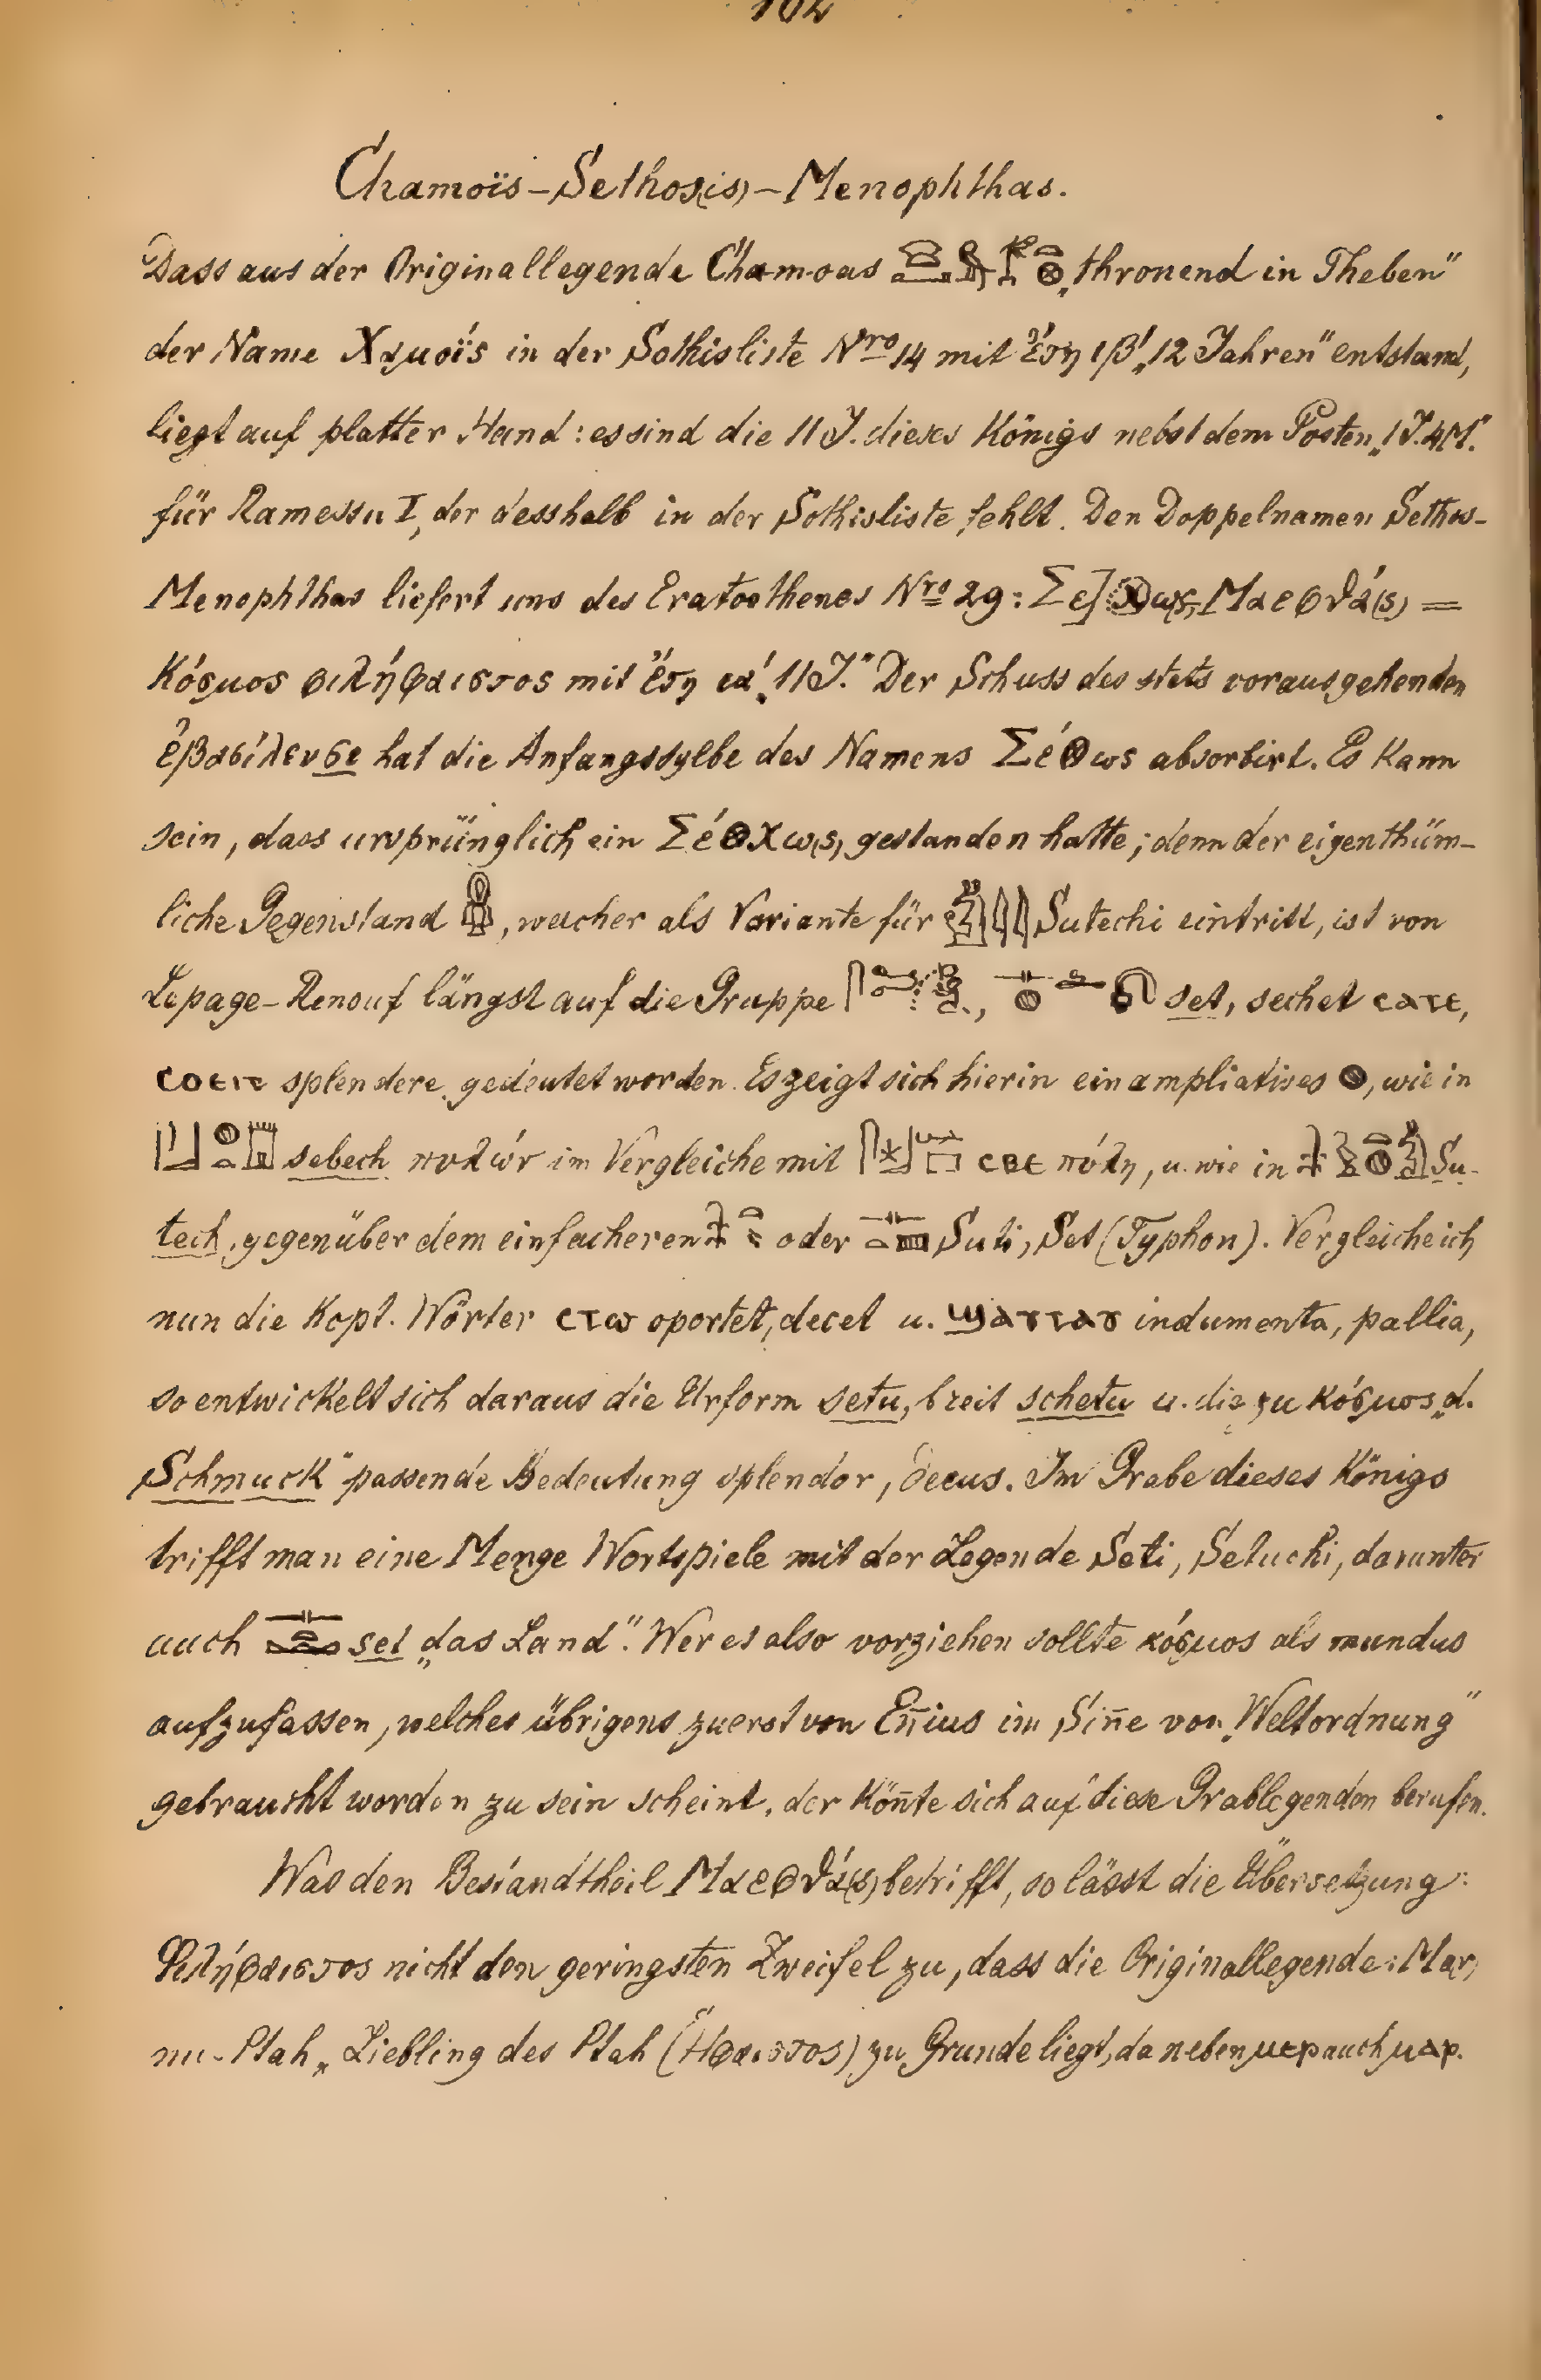 102
Chamoïs–Sethos(is)–Menophthas.
Dass aus der Originallegende Cham-oas „thronend in Theben"
der Name Χαμοΐς in der Sothisliste Nro 14 mit ἔτη ιβ' „12 Jahren" entstand,
liegt auf platter Hand: es sind die 11 J. dieses Königs nebst dem Posten „1 J. 4 M."
für Ramessu I, der desshalb in der Sothisliste fehlt. Den Doppelnamen Sethos-
Menophthas liefert uns des Eratosthenes Nro 29: Σε]Θω(ς, Μαεφθά(ς) =
Κόσμος φιλήφαιστος mit ἔτη ια' „11 J." Der Schuss des stets vorausgehenden
ἐβασίλευσε hat die Anfangssylbe des Namens Σέθως absorbirt. Es kann
sein, dass ursprünglich ein Σέθχω(ς, gestanden hatte; denn der eigenthüm-
liche Gegenstand , welcher als Variante für Sutechi eintritt, ist von
Lepage-Renouf längst auf die Gruppe , set, sechet ⲥⲁⲧⲉ,
ⲥⲟⲉⲓⲧ splendere gedeutet worden. Es zeigt sich hierin ein ampliatives , wie in
sebech πυλών im Vergleiche mit ⲥⲃⲉ πύλη, u. wie in Su-
tech, gegenüber dem einfacheren oder Suti, Set (Typhon). Vergleiche ich
nun die kopt. Wörter ⲥⲧⲱ oportet, decet u. ϣⲁⲩⲧⲁⲩ indumenta, pallia,
so entwickelt sich daraus die Urform setu, breit schetu u. die zu κόσμος „d.
Schmuck" passende Bedeutung splendor, decus. Im Grabe dieses Königs
trifft man eine Menge Wortspiele mit der Legende Seti, Setuchi, darunter
auch set „das Land". Wer es also vorziehen sollte κόσμος als mundus
aufzufassen, welches übrigens zuerst von En̄ius im Sin̄e von „Weltordnung"
gebraucht worden zu sein scheint, der kön̄te sich auf diese Grablegenden berufen.
Was den Bestandtheil Μαεφθά(ς) betrifft, so lässt die Übersetzung:
Φιλήφαιστος nicht den geringsten Zweifel zu, dass die Originallegende: Mar,
nu-Ptah „Liebling des Ptah (Ἥφαιστος) zu Grunde liegt, da neben ⲙⲉⲣ auch ⲙⲁⲣ.